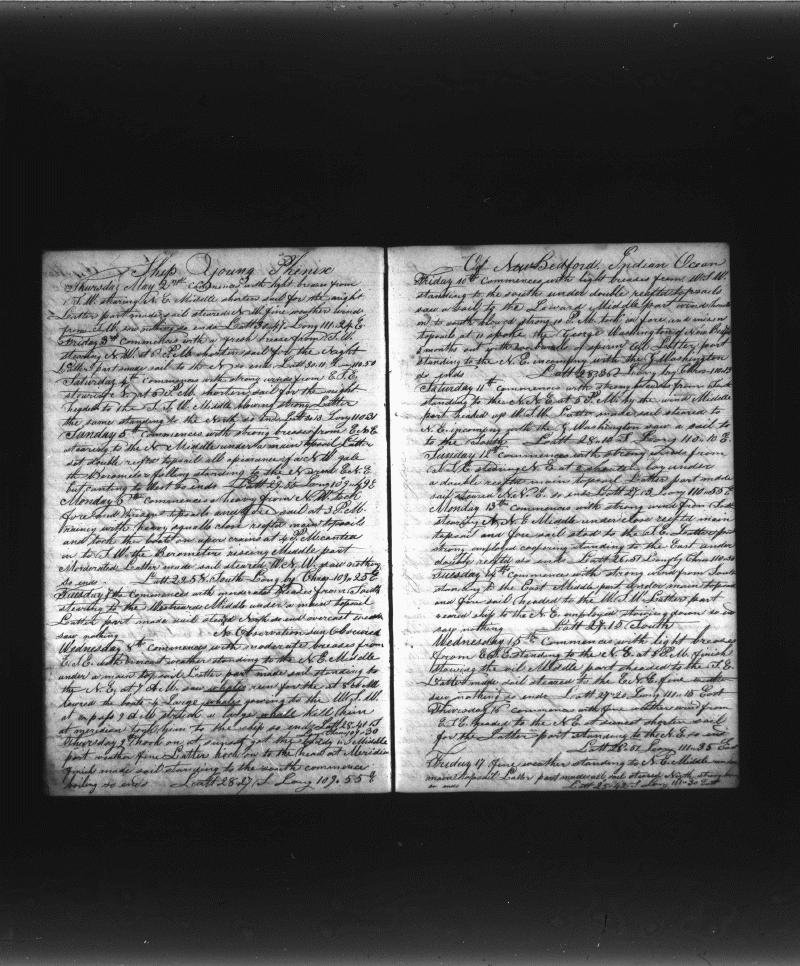 Ship Young Phenix
Thursday May 2nd Commences with light breese from
S.W. stearing N.E. Middle shorten sail for the night
Latter part made sail steared N.W. fine weather wind
from S.W. saw nothing so ends Latt 30-47 Long 111-24 E
Friday 3d commences with a fresh breese from S.W.
stearing N.W. at 6 P.M. shorten sail for the Night
Latter part made sail to the N. so ends Latt 30-11 Long 110-50
Saturday 4th commences with strong winds from E.S.E.
steared N. at 6 P.M. shorten sail for the night
headed to the S.S.W. Middle blowing strong Latter
the same standing to the North so ends Latt 30-13 Long 110-31
Sunday 5th Commences with strong breeses from E.N.E.
stearing to the N. Middle under the main topsail Latter
set double reefed topsails all apearance of a N.W. gale
the Barometer falling standing to the N. wind E.N.E.
but canting to West so ends Latt 29-25 Long 109-49 E
Monday 6th commences heavy from N.W. took
fore and mizzen topsails and fore sail at 3 P.M.
rainey with heavy squalls close reefed main topsails
and took the boats on uper crains at 4 P.M. canted
in to S.W. the Barometer rising Middle part
Moderated Latter made sail steared W.N.W. saw nothing
so ends Latt 28-58 South Long by Chro 109-25 E
Tuesday 7th commences with moderate breeses from South
stearing to the Westward Middle under a main topsail
Latter part made sail steard North so ends overcast weather
saw nothing No Observation sun Obscured
Wednesday 8th commences with moderate breeses from
E.S.E. with overcast weather standing to the N.E. Middle
under a main topsail Latter part made sail standing to
the N.E. at 7 A.M. saw whales run for them at 8 A.M.
lowred the boats 4 Large whales gowing to the W.S.W.
at 9 A.M. struck a large whale kill him
at meridian took him to the ship so ends Latt 28-41 S
Long Chro 109-30
Thursday 9 hook on at sunset got the body in Middle
part weather fine Latter hook on to the head at Meridian
finish made sail standing to the south commence
boiling so ends Latt 28-27 S Long 109-55 E
Of New Bedford, Indian Ocean
Friday 10th Commences with light breeses from W.S.W.
standing to the south under double reefed topsails
saw a sail to the Leward Middle part wind
in to south blow'd strong 10 P.M. took in fore and mizen
topsails at 11 spoke the George Washington of New Bedford
months out with barrels of sperm Oil Latter part
standing to the N.E. in company with the G Washington
so ends Latt 28-36 Long by Chro 110-13
Saturday 11th commences with strong winds from South
standing to the N.N.E. at 5 P.M. by the wind Middle
part headed up W.S.W. Latter made sail steared to
N.E. in company with the G Washington saw a sail to
to the South Latt 28-10 S Long 110-10 E
Sunday 12th commences with strong winds from
S.S.E. stearing N.E. at 6 shorten lay under
a double reefed main topsail Latter part made
sail steared N.N.E. so ends Latt 27-13 Long 110-53 E
Monday 13th commences with strong wind from South
stearing N.N.E. Middle under close reefed main
topsail and fore sail to the S.E. Latter part
strong employed coopering standing to the East under
double reefs so ends Latt 26-57 Long by Chro 110-30
Tuesday 14th commences with strong winds from South
standing to the East Middle part under main topsail
and fore sail headed to the W.S.W. Latter part
weard ship to the N.E. employed stowing down so ends
saw nothing Latt 27-15 South
Wednesday 15th Commences with light breeses
from E.S.E. standing to the N.E. at 8 P.M. finish
stowing the oil Middle part headed to the S.E.
Latter made sail steared to the E.N.E. fine weather
saw nothing so ends Latt 27-20 Long 111-15 East
Thursday 16 commences with fine weather wind from
E.S.E. headed to the N.E. at sunset shorten sail
for the Latter part standing to the N.E. so ends
Latt 26-01 Long 111-35 East
Friday 17 fine weather standing to N.E. Middle under
main topsail Latter part made all sail steared North strong breese
so ends Latt 25-42 S Long 111-30 East